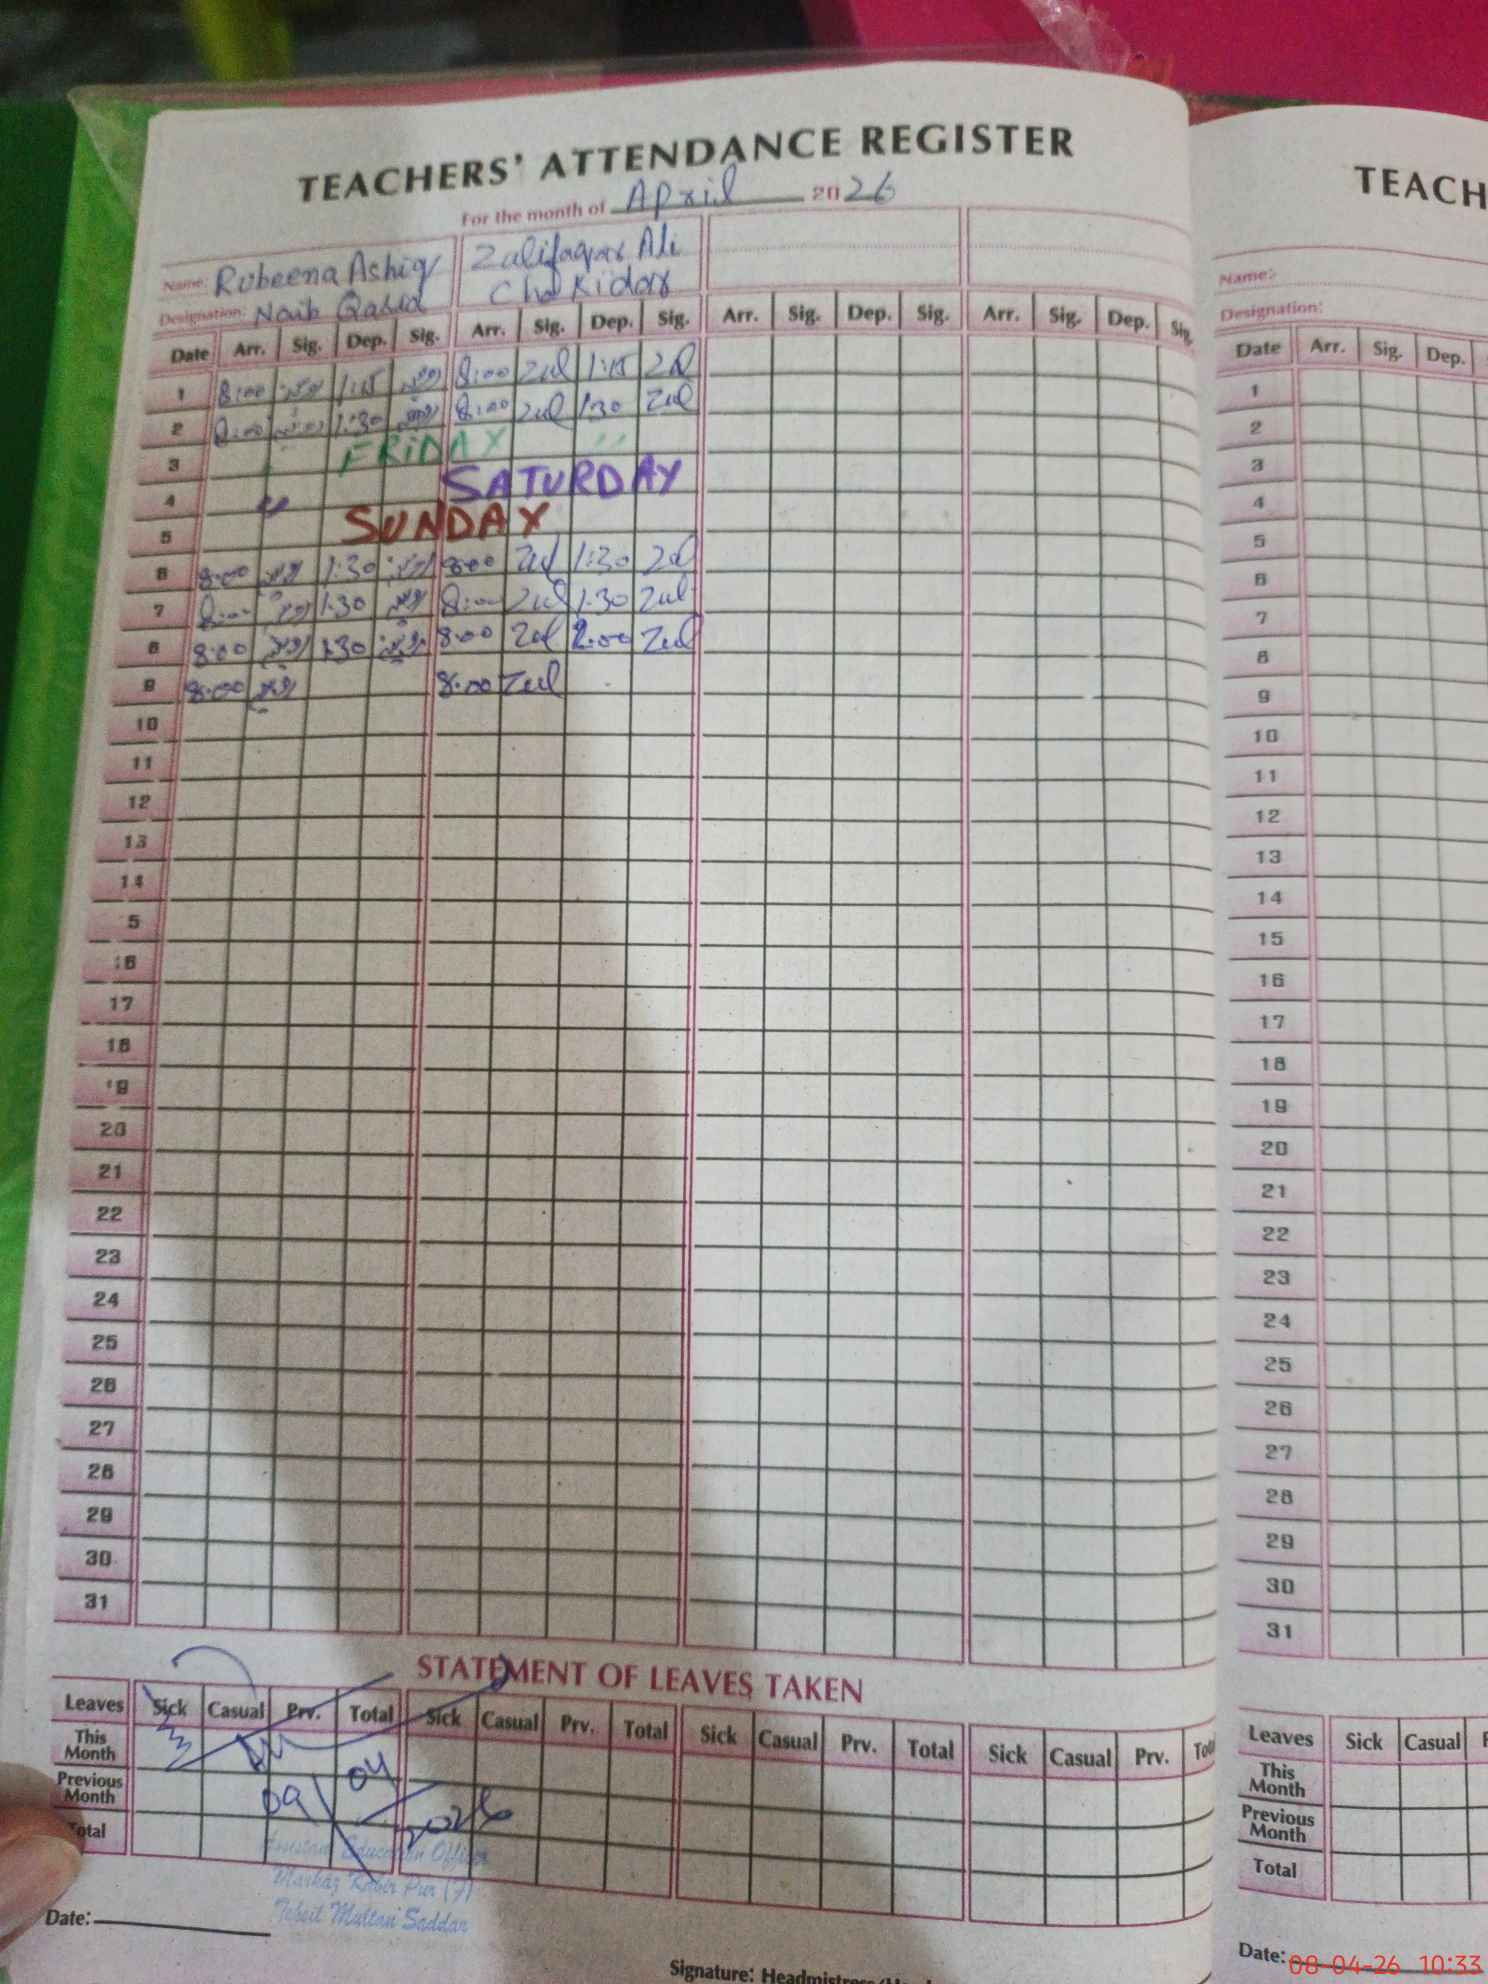 TEACHERS' ATTENDANCE REGISTER
For the month of April 2026
Name: Rubeena Ashiq Zulifaqar Ali
Designation: Naib Qasid Chokidar
Date Arr. Sig. Dep. Sig. Arr. Sig. Dep. Sig. Arr. Sig. Dep. Sig. Arr. Sig. Dep. Sig.
1 8:00 1:15 8:00 Zul 1:15 Zul
2 8:00 1:30 8:00 Zul 1:30 Zul
3 FRIDAY
4 SATURDAY
5 SUNDAY
6 8:00 1:30 8:00 Zul 1:30 Zul
7 8:00 1:30 8:00 Zul 1:30 Zul
8 8:00 1:30 8:00 Zul 2:00 Zul
9 8:00 8:00 Zul
10
11
12
13
14
15
16
17
18
19
20
21
22
23
24
25
26
27
28
29
30
31
STATEMENT OF LEAVES TAKEN
Leaves Sick Casual Prv. Total Sick Casual Prv. Total Sick Casual Prv. Total Sick Casual Prv.
This Month
Previous Month
Total
09/04/2026
Assistant Education Officer
Markaz Pur (F)
Tehsil Multan Saddar
Date:
Signature:
TEACH
Name:
Designation:
Date Arr. Sig. Dep.
1
2
3
4
5
6
7
8
9
10
11
12
13
14
15
16
17
18
19
20
21
22
23
24
25
26
27
28
29
30
31
Leaves Sick Casual
This Month
Previous Month
Total
Date:
08-04-26 10:33